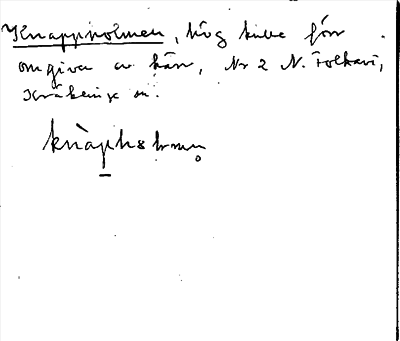 Knappholmen, hög kulle förr
omgiven av kärr, Nr 2 N. Folkavi,
Kräklinge sn.